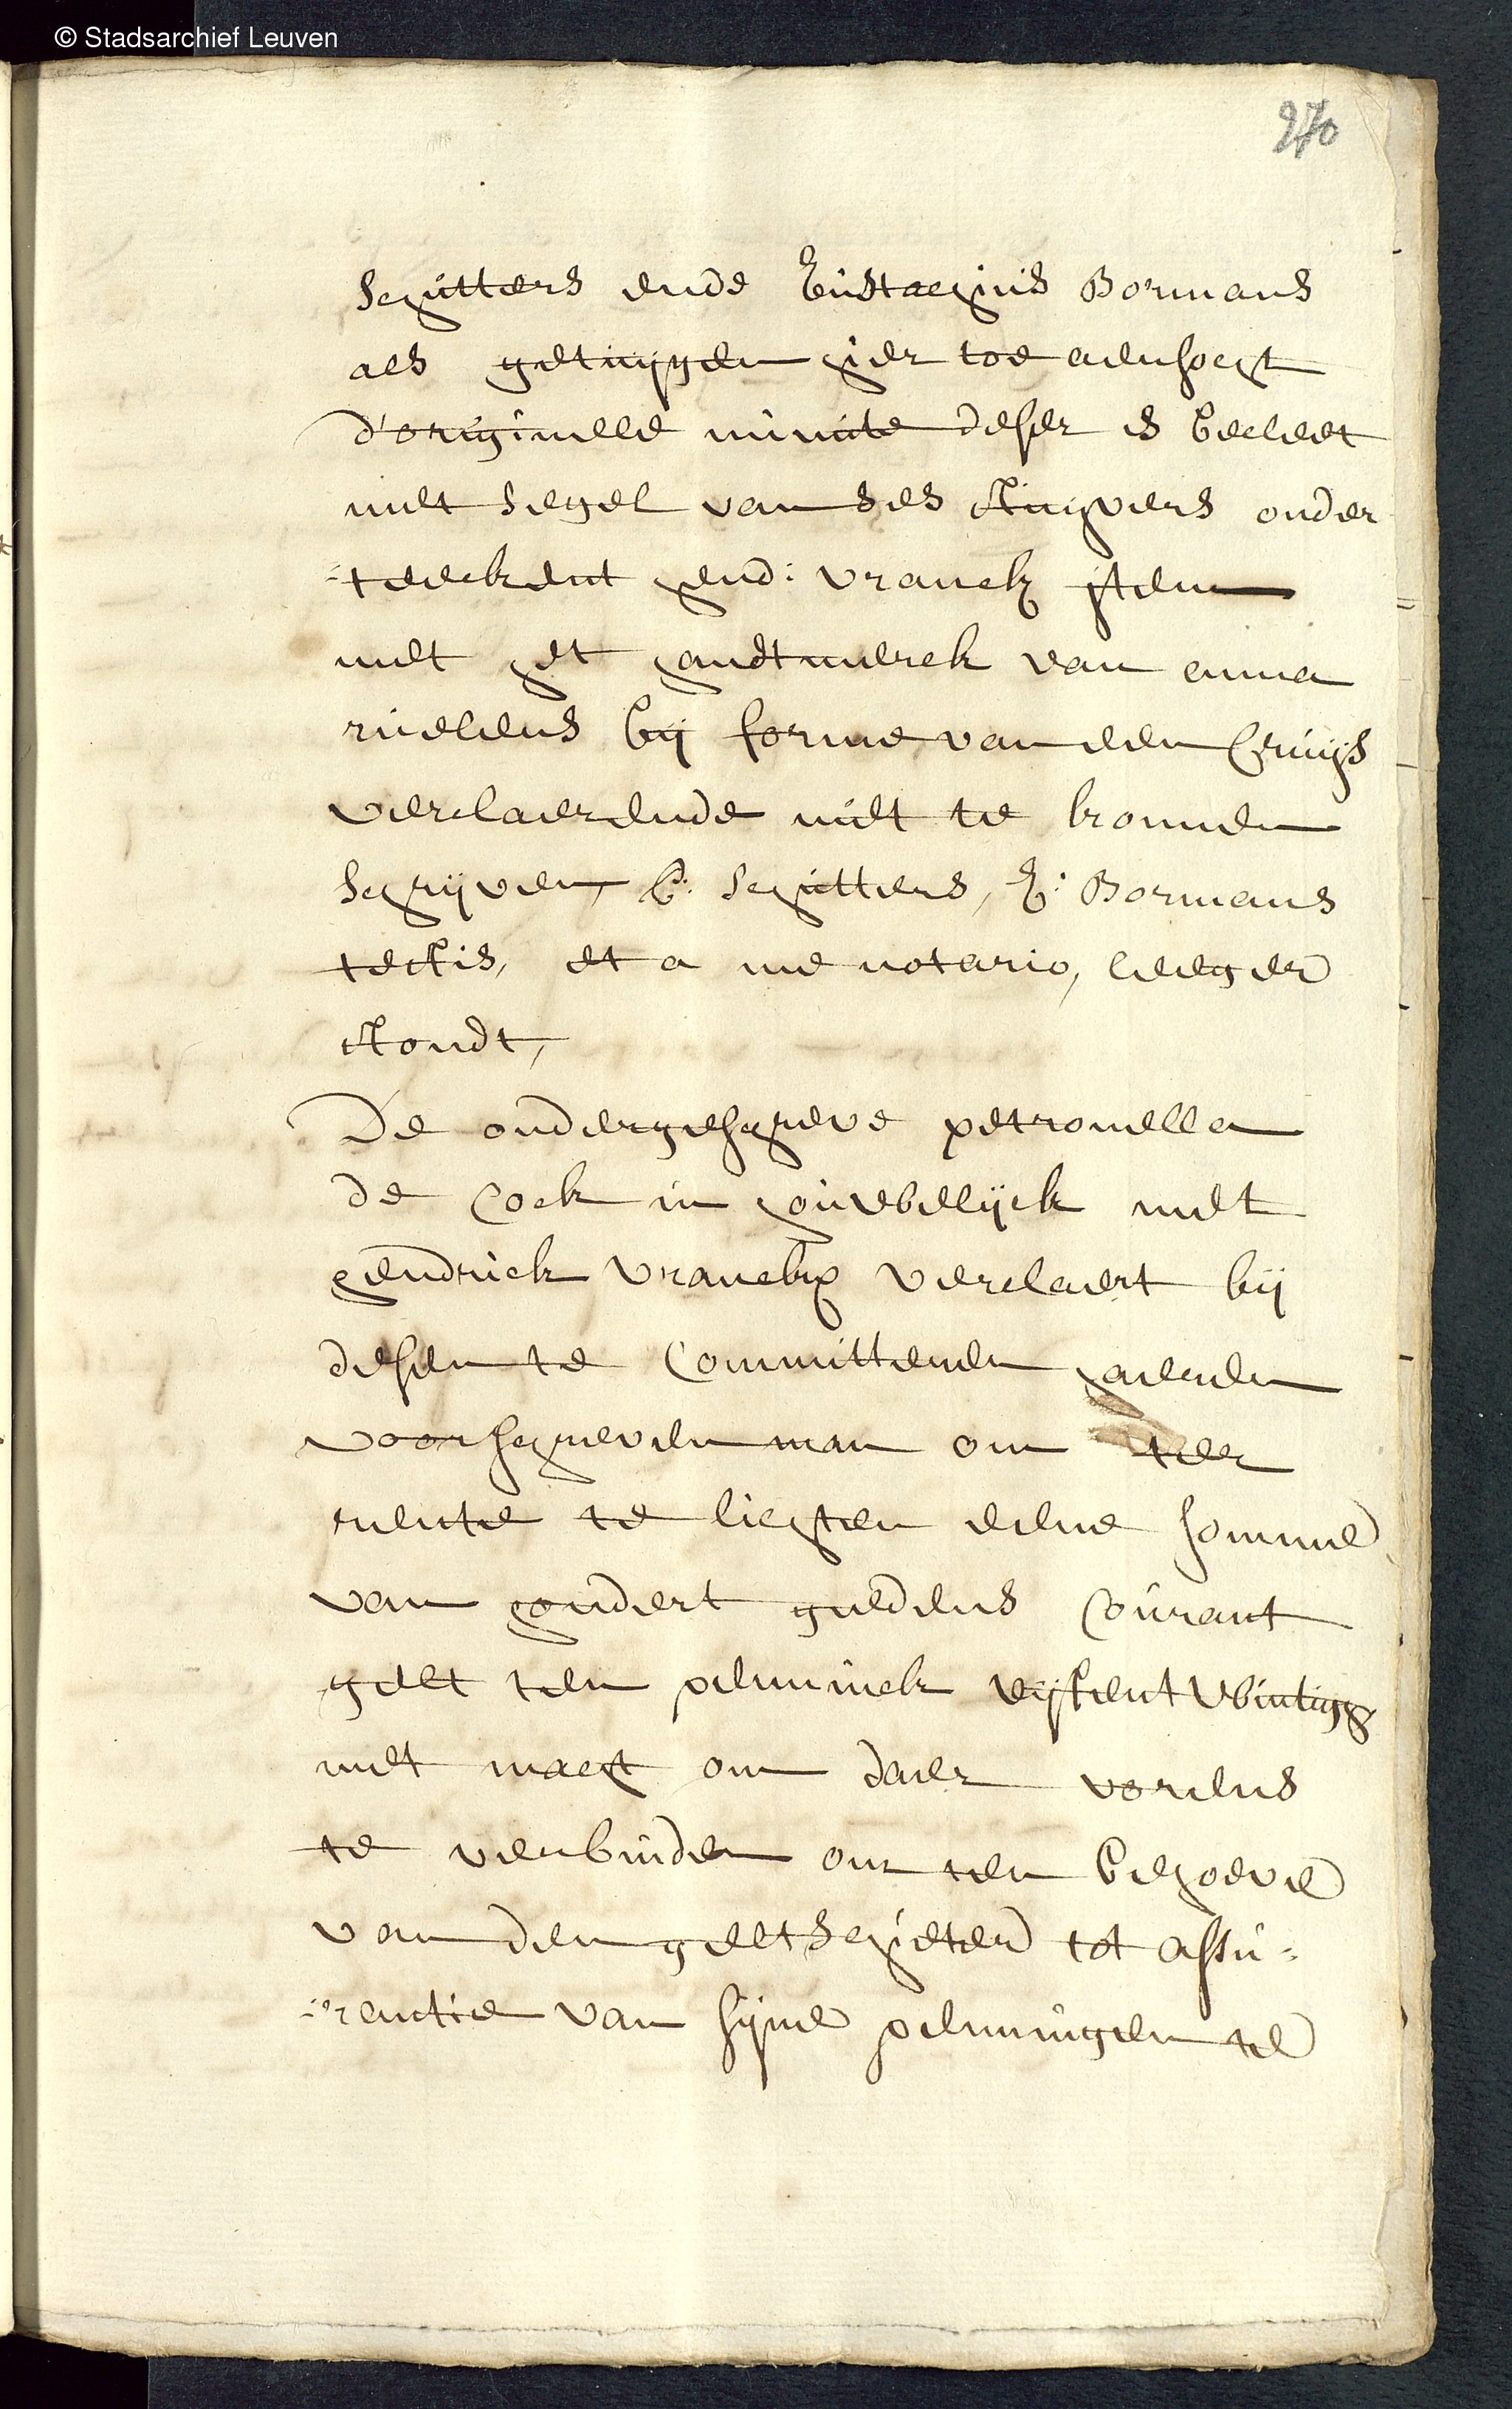 © Stadsarchief Leuven
270
schutters ende Eustachius Bormans
als getuijgen hier toe aensocht
d'originele minute deser is becleet
met segel van ses stuijvers onder
=teeckent hend: vranckx item
met het handtmerck van anna
roelens bij forme van een Cruijs
verclaerende niet te konnen
schrijven, C: schutters, E: Bormans
testis, et a me notario, leeger
stondt,
De ondergeschreve petronella
de Cock in houwelijck met
hendrick vranckx verclaert bij
desen te Committeren haeren
voorschreven man om ter
rente te lichten eene somme
van hondert guldens Courant
gelt den penninck vijfentwintigh
met macht om daer voorens
te verbinden om ten behoeve
van den geltschieter tot assu=
=rantie van sijne penningen te